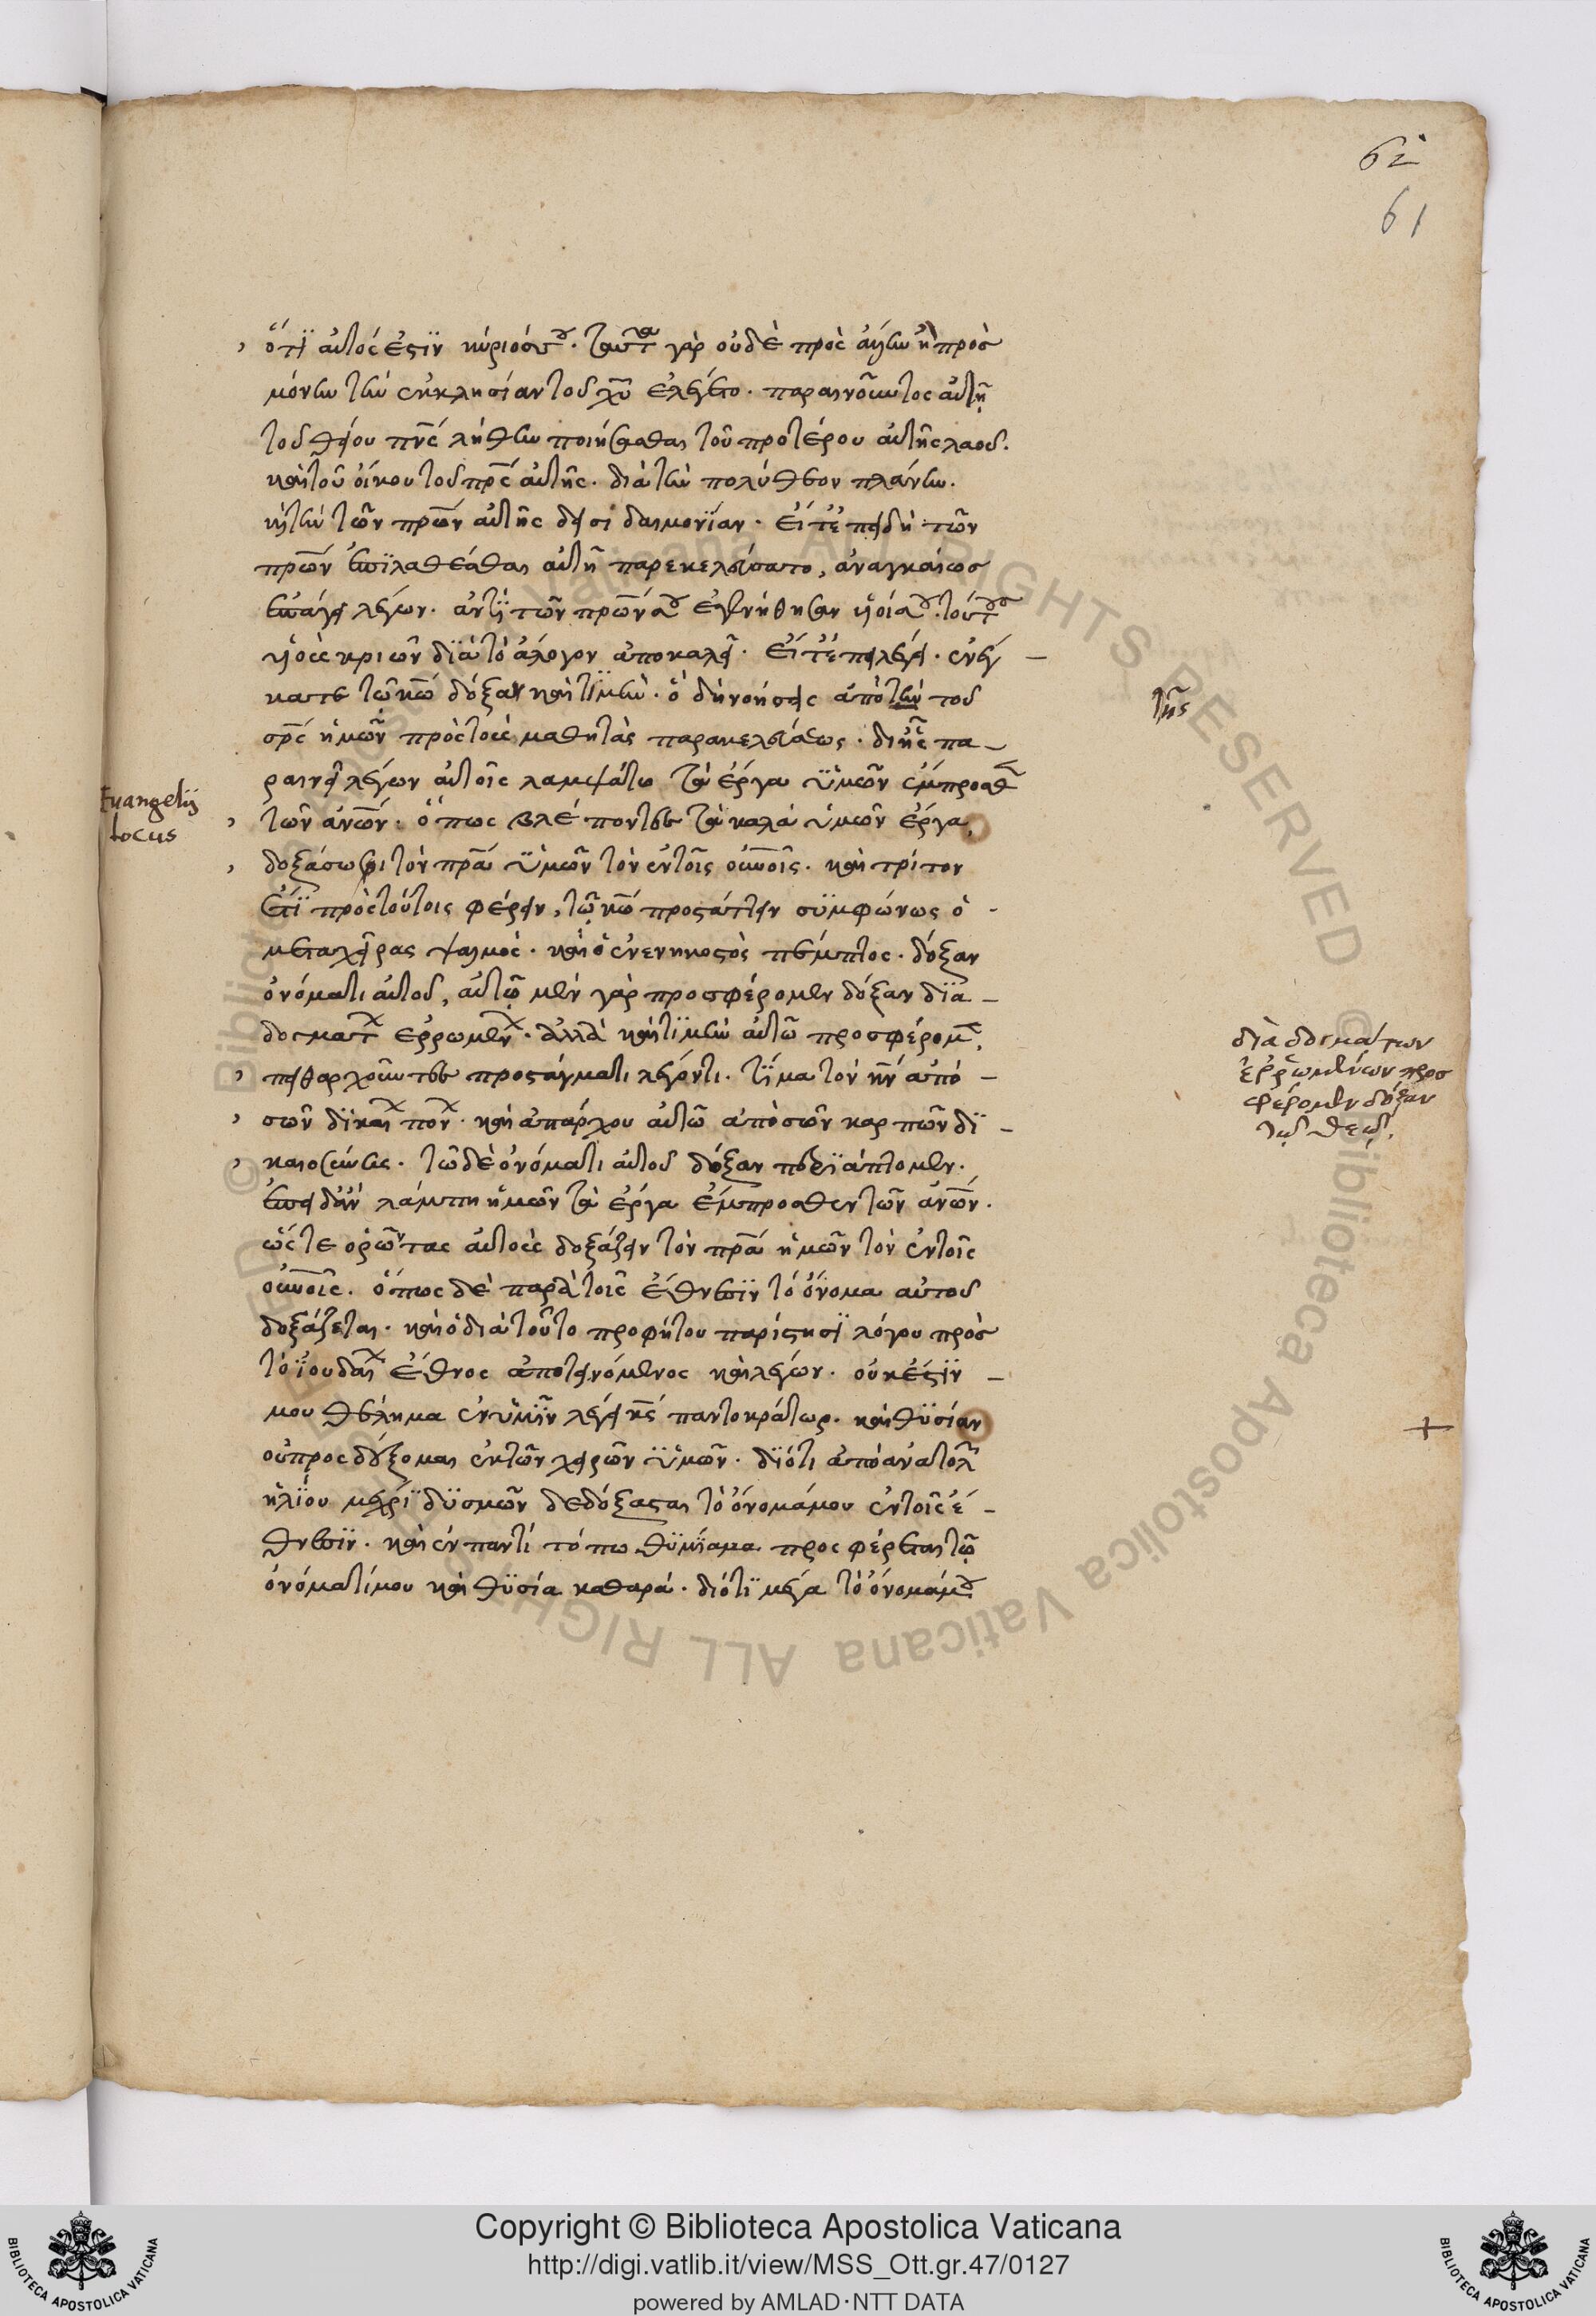 62
61
ὅτι αὐτός ἐστιν κύριός σου. ταῦτα γὰρ οὐδὲ πρὸς ἄλλην ἢ πρὸς
μόνην τὴν ἐκκλησίαν τοῦ χυ ἐλέγετο. παραινοῦντος αὐτῇ
τοῦ θείου πνς λήθην ποιήσασθαι τοῦ προτέρου αὐτῆς λαοῦ.
καὶ τοῦ οἴκου τοῦ πρς αὐτῆς. διὰ τὴν πολύθεον πλάνην.
τῶν πρων αὐτῆς δεισιδαιμονίαν. εἶτ' ἐπειδὴ τῶν
πρων ἐπιλαθέσθαι αὐτῇ παρεκελεύσατο, ἀναγκαίως
ἐπάγει λέγων. ἀντὶ τῶν πρων σου ἐγενήθησαν υἱοί σου. τούτους
υἱοὺς κριῶν διὰ τὸ ἄλογον ἀποκαλεῖ. εἶτ' ἐπιλέγει. ἐνέγ
κατε τῷ κω δόξαν καὶ τιμήν. ὃ δὴ νοήσεις ἀπὸ τὴν τοῦ
σρς ἡμῶν πρὸς τοὺς μαθητὰς παρακελεύσεως. δι' ἧς πα
ραινεῖ λέγων αὐτοῖς λαμψάτω τὰ ἔργα ὑμῶν ἔμπροσθεν
τῶν ανων. ὅπως βλέποντες τὰ καλὰ ὑμῶν ἔργα,
δοξάσωσι τὸν πρα ὑμῶν τὸν ἐν τοῖς ουνοις. καὶ τρίτον
ἔτι πρὸς τούτοις φέρειν, τῷ κω προστάττειν συμφώνως ὁ
μεταχεῖρας ψαλμός. καὶ ὁ ἐνενηκοστὸς πέμπτος. δόξαν
ὀνόματι αὐτοῦ, αὐτῷ μὲν γὰρ προσφέρομεν δόξαν διὰ
δογμάτων ἐρρωμένων. ἀλλὰ καὶ τιμὴν αὐτῷ προσφέρομεν,
πειθαρχοῦντες προστάγματι λέγοντι. τίμα τὸν κν ἀπὸ
σῶν δικαίων πόνων. καὶ ἀπάρχου αὐτῷ ἀπὸ σῶν καρπῶν δι
καιοσύνης. τῷ δὲ ὀνόματι αὐτοῦ δόξαν περιάπτομεν.
ἐπειδὰν λάμπῃ ἡμῶν τὰ ἔργα ἔμπροσθεν τῶν ανων.
ὥστε ὁρῶντας αὐτοὺς δοξάζειν τὸν πρα ἡμῶν τὸν ἐν τοῖς
ουνοις. ὅπως δὲ παρὰ τοῖς ἔθνεσιν τὸ ὄνομα αὐτοῦ
δοξάζεται. καὶ ὁ διὰ τοῦτο προφήτου παρίστησι λόγου πρὸς
τὸ ἰουδαίων ἔθνος ἀποτεινόμενος καὶ λέγων. οὐκ ἔστιν
μου θέλημα ἐν ὑμῖν λέγει κς παντοκράτωρ. καὶ θυσίαν
οὐ προσδέξομαι ἐκ τῶν χειρῶν ὑμῶν. διότι ἀπὸ ἀνατολῶν
ἡλίου μέχρι δυσμῶν δεδόξασται τὸ ὄνομά μου ἐν τοῖς ἔ
θνεσιν. καὶ ἐν παντὶ τόπῳ θυμίαμα προσφέρεται τῷ
ὀνόματί μου καὶ θυσία καθαρά. διότι μέγα τὸ ὄνομά μου
τῆς
Euangelij
locus
διὰ δογμάτων
ἐρρωμένων προσ
φέρομεν δόξαν
τῷ θεῷ.
Copyright © Biblioteca Apostolica Vaticana
http://digi.vatlib.it/view/MSS_Ott.gr.47/0127
powered by AMLAD·NTT DATA
BIBLIOTECA APOSTOLICA VATICANA
BIBLIOTECA APOSTOLICA VATICANA
© Biblioteca Apostolica Vaticana ALL RIGHTS RESERVED